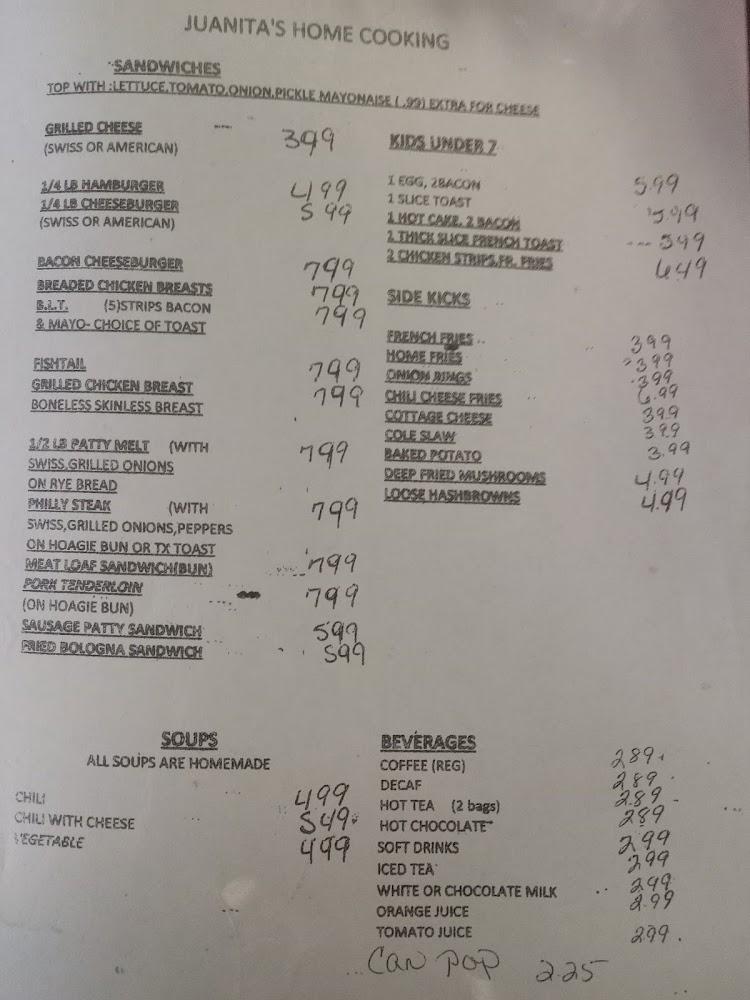 JUANITA'S HOME COOKING
SANDWICHES
TOP WITH :LETTUCE,TOMATO,ONION,PICKLE MAYONAISE ( .99) EXTRA FOR CHEESE
GRILLED CHEESE 399
(SWISS OR AMERICAN)
1/4 LB HAMBURGER 499
1/4 LB CHEESEBURGER 599
(SWISS OR AMERICAN)
BACON CHEESEBURGER 799
BREADED CHICKEN BREASTS 799
B.L.T. (5)STRIPS BACON 799
& MAYO- CHOICE OF TOAST
FISHTAIL 799
GRILLED CHICKEN BREAST 799
BONELESS SKINLESS BREAST
1/2 LB PATTY MELT (WITH 799
SWISS,GRILLED ONIONS
ON RYE BREAD
PHILLY STEAK (WITH 799
SWISS,GRILLED ONIONS,PEPPERS
ON HOAGIE BUN OR TX TOAST
MEAT LOAF SANDWICH(BUN) 799
PORK TENDERLOIN 799
(ON HOAGIE BUN)
SAUSAGE PATTY SANDWICH 599
FRIED BOLOGNA SANDWICH 599
KIDS UNDER 7
1 EGG, 2BACON 599
1 SLICE TOAST
1 HOT CAKE, 2 BACON 599
1 THICK SLICE FRENCH TOAST 599
2 CHICKEN STRIPS,FR. FRIES 649
SIDE KICKS
FRENCH FRIES 399
HOME FRIES 399
ONION RINGS 399
CHILI CHEESE FRIES 6.99
COTTAGE CHEESE 399
COLE SLAW 399
BAKED POTATO 3.99
DEEP FRIED MUSHROOMS 4.99
LOOSE HASHBROWNS 4.99
SOUPS
ALL SOUPS ARE HOMEMADE
CHILI 499
CHILI WITH CHEESE 549
VEGETABLE 499
BEVERAGES
COFFEE (REG) 289
DECAF 289
HOT TEA (2 bags) 289
HOT CHOCOLATE 289
SOFT DRINKS 299
ICED TEA 299
WHITE OR CHOCOLATE MILK 299
ORANGE JUICE 2.99
TOMATO JUICE 299
Can pop 2.25